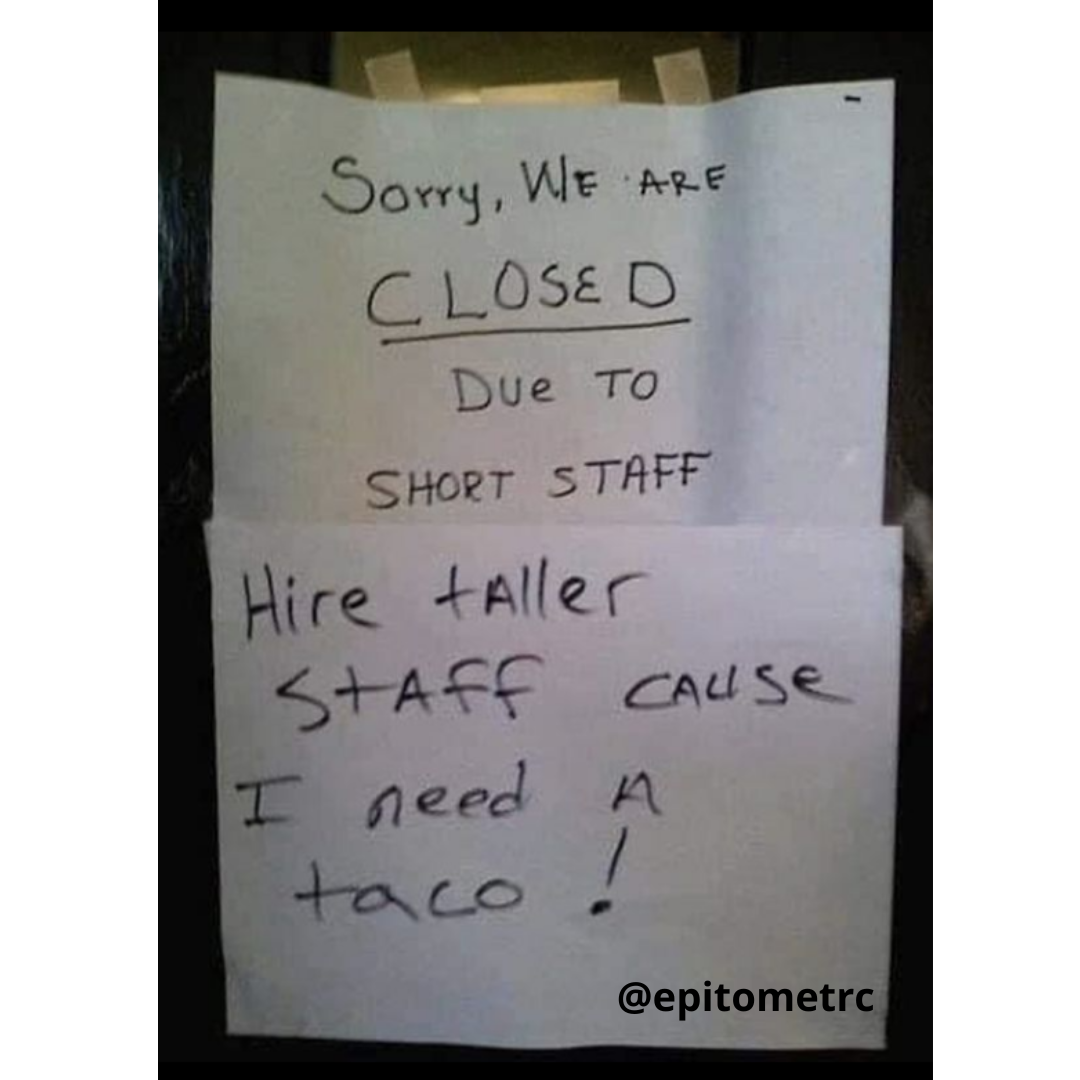 Sorry, WE ARE
CLOSED
Due TO
SHORT STAFF
Hire tAller
StAff CAUSe
I need A
taco!
@epitometrc